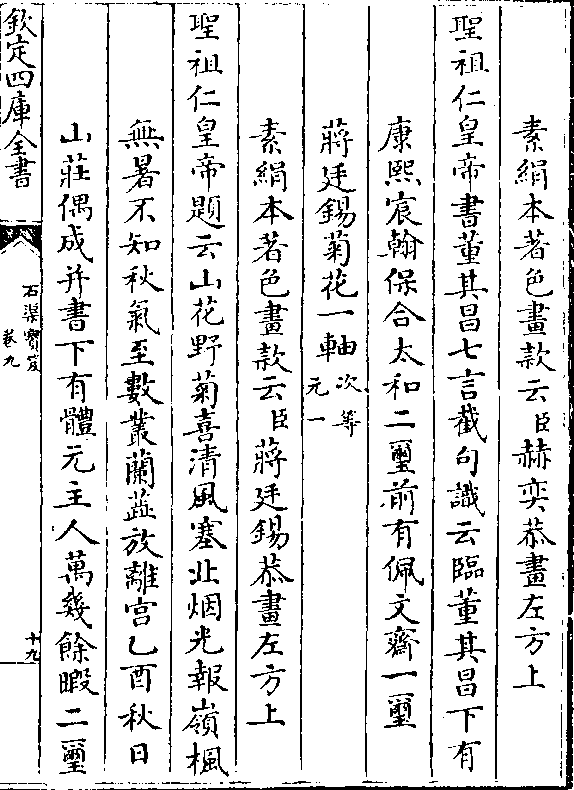 素絹本著色畫款云臣赫奕恭畫左方上
聖祖仁皇帝書董其昌七言截句識云臨董其昌下有
康熙宸翰保合太和二璽前有佩文齋一璽
蔣廷錫菊花一軸次等元一
素絹本著色畫款云臣蔣廷錫恭畫左方上
聖祖仁皇帝題云山花野菊喜清風塞北烟光報嶺楓
無暑不知秋氣至數叢蘭蕋放離宮乙酉秋日
山莊偶成并書下有體元主人萬幾餘暇二璽
欽定四庫全書
石渠寶笈
卷九
十九